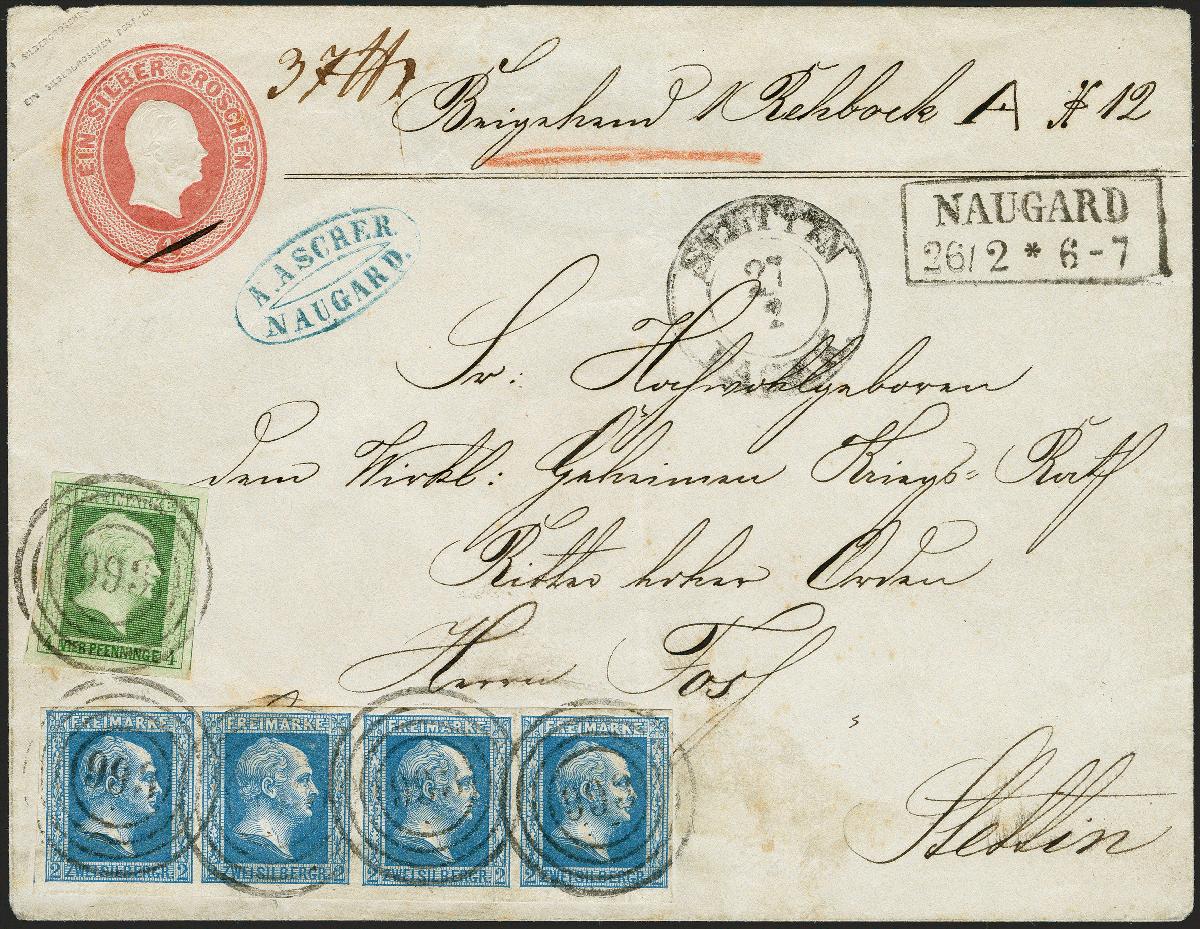 EIN SILBERGROSCHEN POST-CO
EIN SILBER GROSCHEN
1
37
Beigehend 1 Rehbock A # 12
NAUGARD
26/2 * 6-7
A. ASCHER
NAUGARD.
STETTIN
27
2
Sr: Hochwohlgeboren
dem Wirkl: Geheimen Kriegs-Rath
Ritter hoher Orden
Herrn
Stettin
FREIMARKE
993
4 VIER PFENNINGE 4
FREIMARKE FREIMARKE FREIMARKE FREIMARKE
993 993 993
2 ZWEI SILBERGR. 2 2 ZWEI SILBERGR. 2 2 ZWEI SILBERGR. 2 2 ZWEI SILBERGR. 2